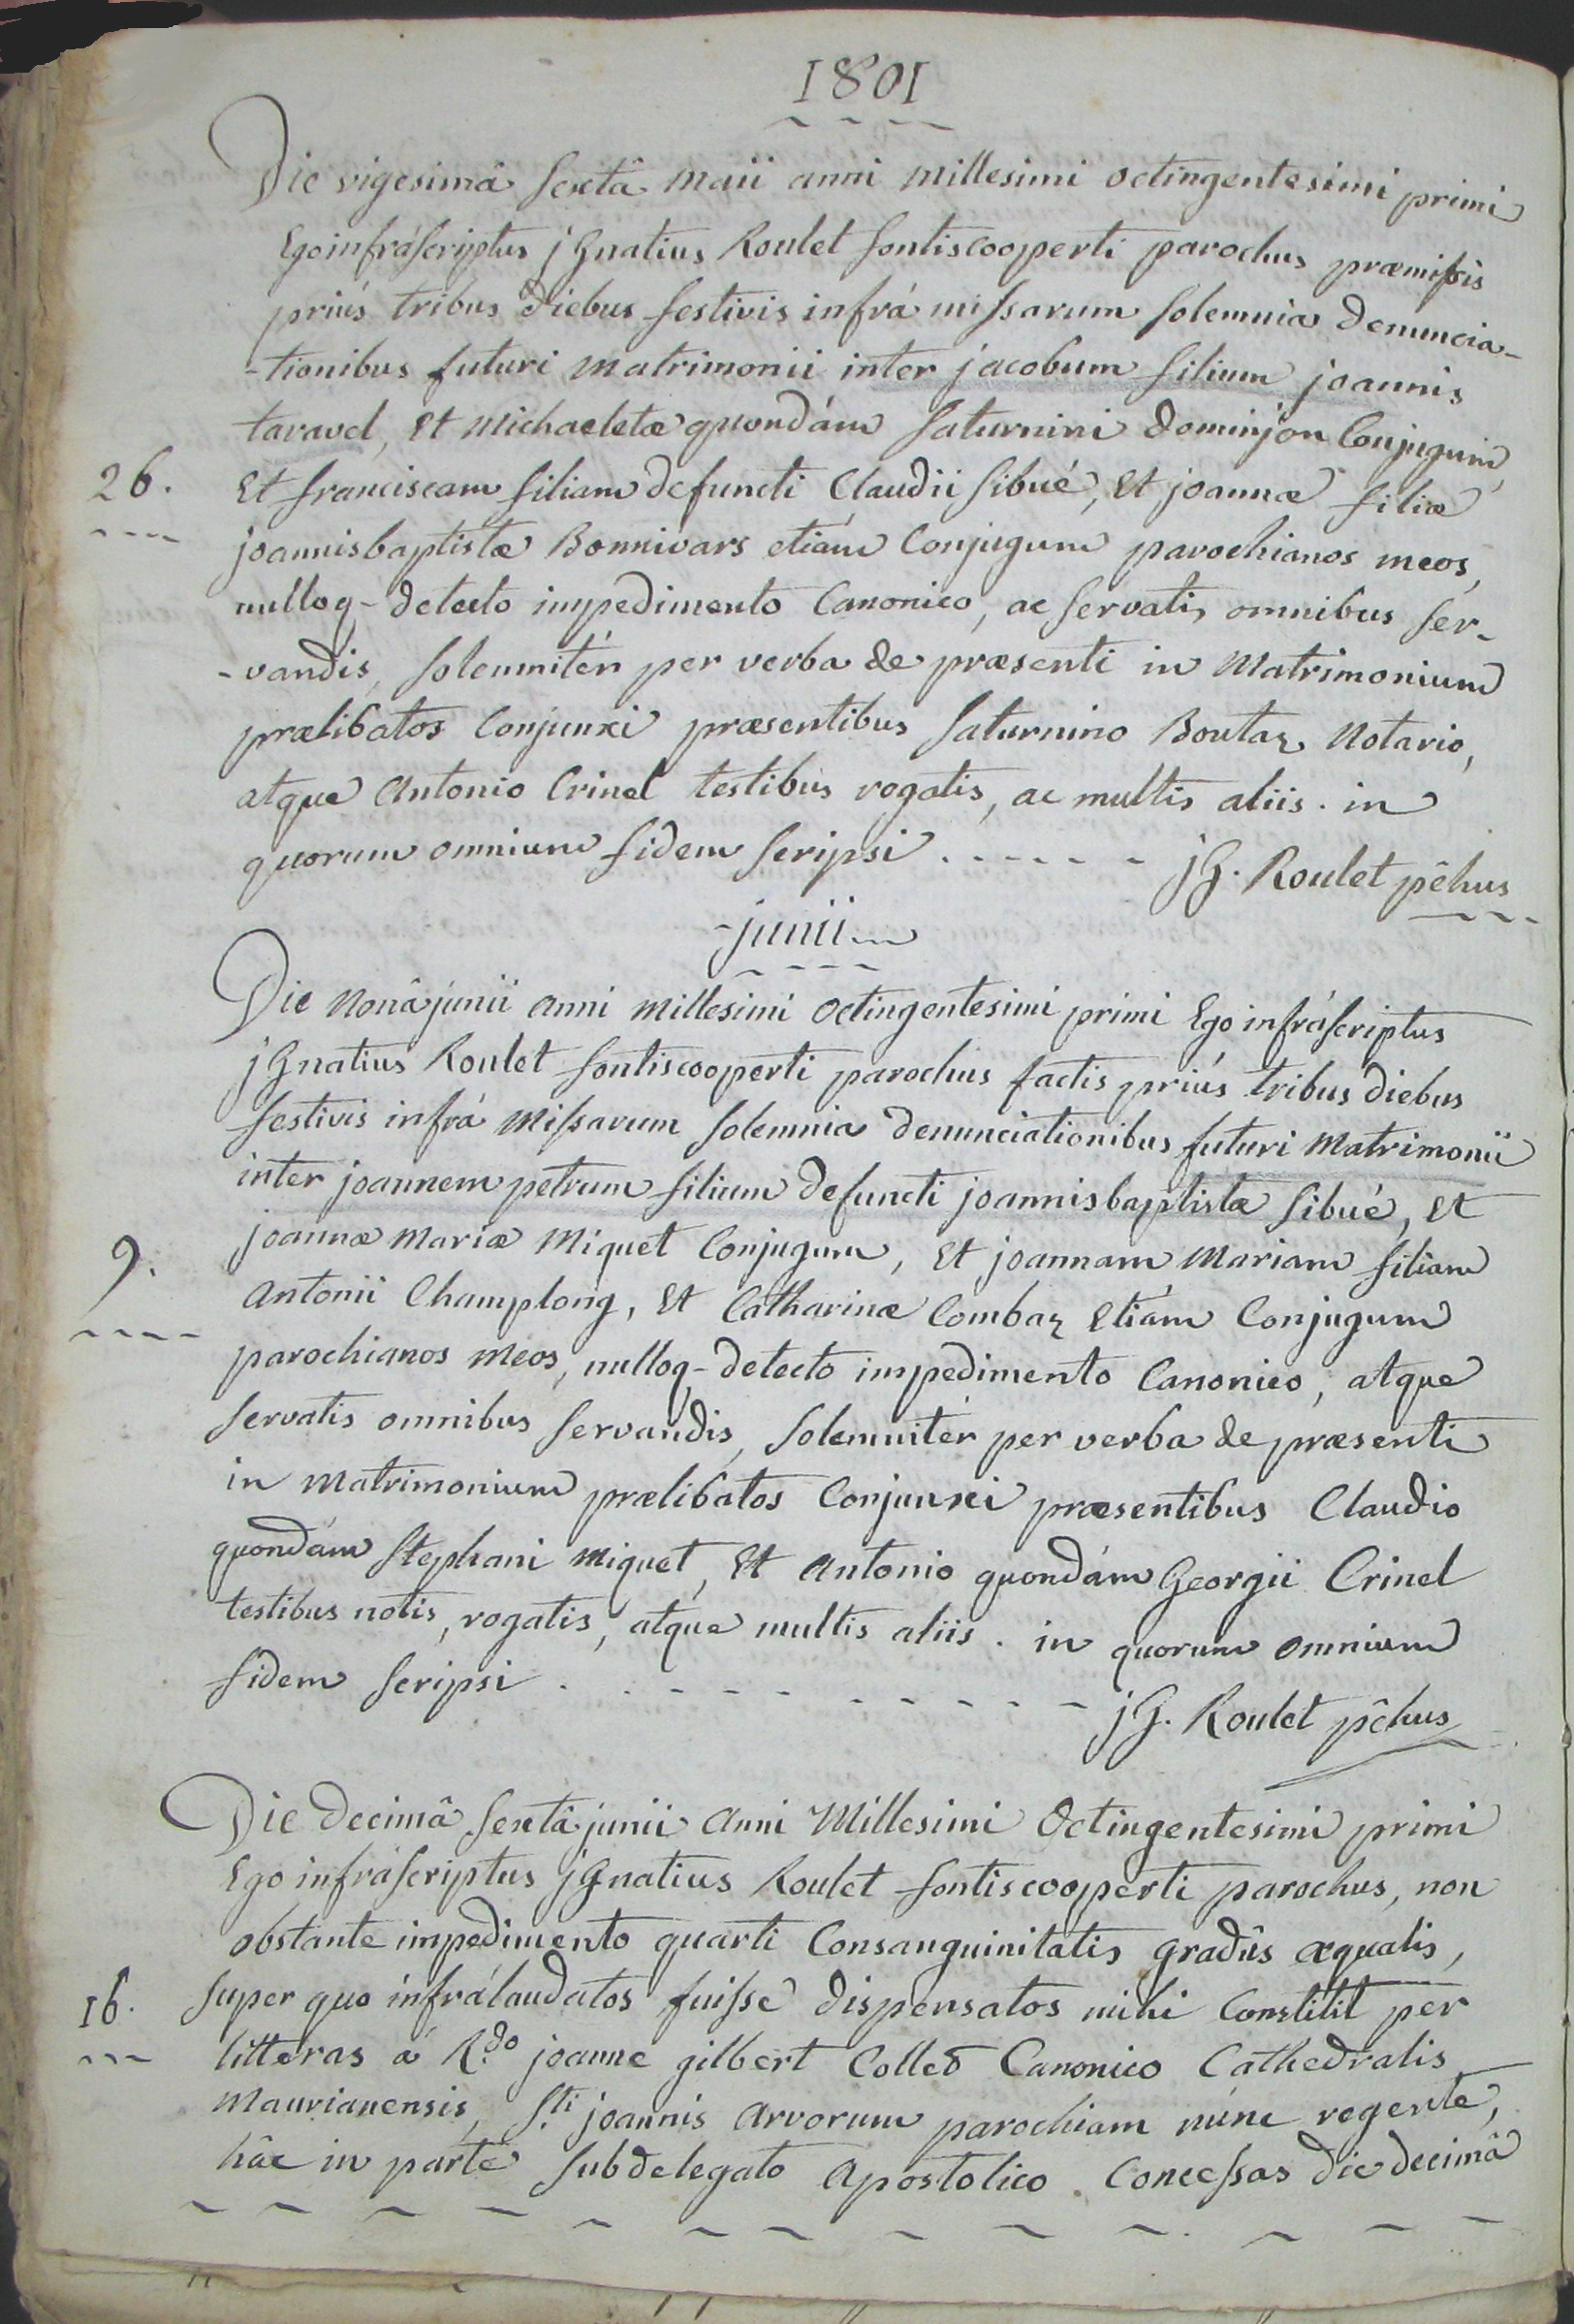 1801
Die vigesimâ sextâ maii anni millesimi octingentesimi primi
Ego infráscriptus jGnatius Roulet fontiscooperti parochus præmissis
priús tribus diebus festivis infrá missarum solemnia denuncia-
-tionibus futuri matrimonii inter jacobum filium joannis
taravel, Et Michaeletæ quondám saturnini dominjon Conjugum,
26. Et franciscam filiam defuncti Claudii sibué, Et joannæ filiæ
joannisbaptistæ Bonnivars etiám Conjugum parochianos meos,
nulloq- detecto impedimento Canonico, ac servatis omnibus ser-
-vandis, solemnitér per verba de præsenti in Matrimonium
prælibatos Conjunxi præsentibus saturnino Boutaz Notario,
atque Antonio Crinel testibus rogatis, ac multis aliis. in
quorum omnium fidem scripsi . - - - - - jG. Roulet pêhus
junii
Die Nonâ junii anni millesimi octingentesimi primi Ego infráscriptus
jGnatius Roulet fontiscooperti parochus factis priús tribus diebus
festivis infrá Missarum solemnia denunciationibus futuri Matrimonii
inter joannem petrum filium defuncti joannisbaptistæ sibué, Et
joannæ Mariæ Miquet Conjugum, Et joannam Mariam filiam
9. Antonii Champlong, Et Catharinæ Combaz Etiám Conjugum
parochianos meos, nulloq- detecto impedimento Canonico, atque
servatis omnibus servandis, solemnitér per verba de præsenti
in Matrimonium prælibatos Conjunxi præsentibus Claudio
quondám stephani Miquet, Et Antonio quondám Georgii Crinel
testibus notis, rogatis, atque multis aliis. in quorum omnium
fidem scripsi . . - - - - - - - - - jG. Roulet pêhus
Die decimâ sextâ junii Anni Millesimi Octingentesimi primi
Ego infráscriptus jGnatius Roulet fontiscooperti parochus, non
obstante impedimento quarti Consanguinitatis gradûs æqualis,
super quo infrálaudatos fuisse dispensatos mihi Constitit per
16. litteras á R.do joanne gilbert Collet Canonico Cathedralis
Maurianensis, S.ti joannis Arvorum parochiam núnc regente,
hâc in parte subdelegato Apostolico. Concessas die decimâ